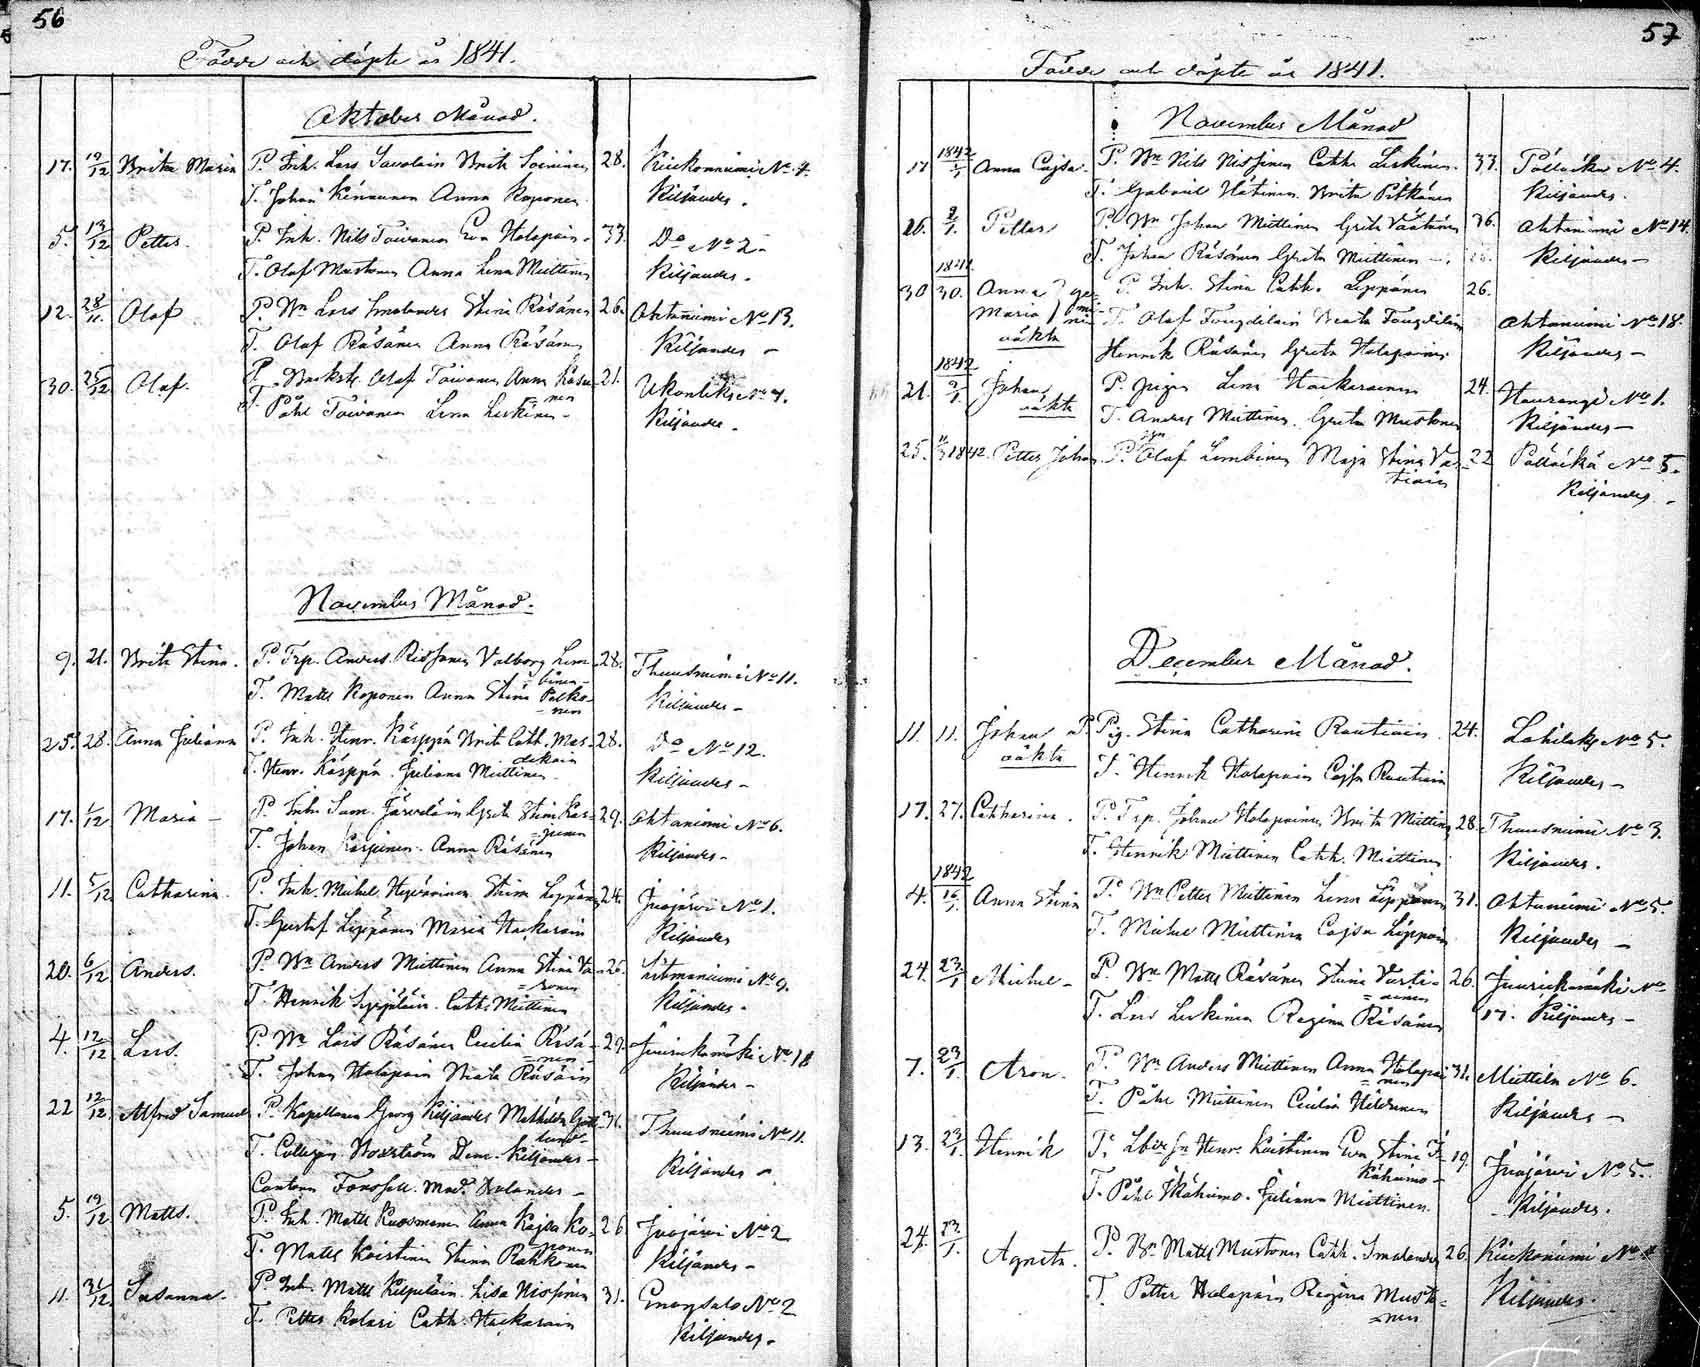 56
Födde och döpte år 1841.
Oktober Månad.
17. 19/12 Brita Maria P. Inh. Lars Savolain Brita Soininen 28. Kiukoniemi No 4.
T. Johan Kinnunen Anna Koponen Kiljander.
5. 13/12 Petter. P. Inh. Nils Toivanen Eva Holopain 33. Do No 2
T. Olof Mustonen Anna Lena Miettinen Kiljander.
12. 28/11. Olof P. Bn Lars Smolander Stina Räsänen 26. Ahtaniemi No 13.
T. Olof Räsänen Anna Räsänen Kiljander
30. 25/12 Olof. P. Backst. Olof Toivanen Anna 21. No 4.
T. Påhl Toivanen Lena Leskinen Kiljander.
November Månad.
9. 21. Brita Stina. P. Trp. Anders Nissinen Valborg Lem= 28. Thuusniemi No 11.
=binen
T. Matts Koponen Anna Stina Pelko= Kiljander
=nen
25. 28. Anna Juliana P. Inh. Henr. Käsppä Brita Cath. 28. Do No 12.
T. Henr. Käsppä Juliana Miettinen Kiljander
17. 1/12 Maria P. Inh. Sam. Järveläin Greta Stina Kar= 29. Ahtaniemi No 6.
T. Johan Karjunen Anna Räsänen Kiljander
11. 5/12 Catharina. P. Inh. Michel Hyvärinen Stina Leppänen 24. Juojärvi No 1.
T. Gustaf Leppänen Maria Hackarain Kiljander
20. 6/12 Anders. P. Bn Anders Miettinen Anna Stina Va= 26. No 9.
T. Henrik Cath. Miettinen Kiljander.
4. 12/12 Lars. P. Bn Lars Räsänen Cecilia Räsä= 29. Juurikamäki No 18
=nen
T. Johan Holopain Beata Räsäin Kiljander
22 12/12 Alfred Samuel P. Kapellanen Georg Kiljander Mathilda Gott= 31. Thuusniemi No 11.
=lund
T. Collega Boxström Dem. Kiljander Kiljander
Cantorn Forssell. Mad. Helander
5. 19/12 Matts. P. Inh. Matts Kuosmanen Anna Kajsa Ko= 26 Juojärvi No 2
=ponen
T. Matts Koistinen Stina Pakkonen Kiljander
11. 31/12 Susanna. P. Inh. Matts Kilpiläin Lisa Nissinen 31. Enonsalo No 2
T. Petter Kolari Cath. Hackarain Kiljander.
57
Födde och döpte år 1841.
November Månad
1842
17 1/1 Anna Cajsa. P. Bn Nils Nissinen Cath. Leskinen 33. Pölläkä No 4.
T. Gabriel Hätinen Brita Pitkänen Kiljander.
26. 2/1. Petter P. Bn Johan Miettinen Greta Väätänen 36. Ahtaniemi No 14.
T. Johan Räsänen Greta Miettinen Kiljander
1841.
30 30. Anna } ge= P. Inh. Stina Cath. Leppänen 26.
Maria } mi=
ni T. Olof Fougdelain Beata Fougdelin Ahtaniemi No 18.
oäkta Henrik Räsänen Greta Holopainen Kiljander
1842
21. 2/1 Johan P. Pigan Lena Hackarainen 24. Haurangi No 1.
oäkta T. Anders Miettinen Greta Mustonen Kiljander
25. 1842. Petter Johan P. Olof Lembinen Maja Stina Va= 22 Pölläkä No 5.
Kiljander
December Månad.
11. 11. Johan P. Pig. Stina Catharina Rautiain 24. Lahilaks No 5.
oäkta T. Henrik Holopain Cajsa Rautiain Kiljander
17. 27. Catharina. P. Trp. Johan Holopainen Brita Miettinen 28. Thuusniemi No 3.
T. Henrik Miettinen Cath. Miettinen Kiljander.
1842
4. 16/1 Anna Stina P. Bn Petter Miettinen Lena Leppänen 31. Ahtaniemi No 5.
T. Michel Miettinen Cajsa Leppäin Kiljander
24. 23/1 Michel P. Bn Matts Räsänen Stina Varti= 26. Juurickamäki No
=ainen
T. Lars Leskinen Regina Räsänen 17. Kiljander
7. 23/1. Aron. P. Bn Anders Miettinen Anna Holopai= 31. Miettilä No 6.
=nen
T. Påhl Miettinen Cecilia Hildunen Kiljander
13. 23/1. Henrik P. Henr. Koistinen Eva Stina I= 19. Juojärvi No 5.
käheimo
T. Påhl Ikäheimo. Juliana Miettinen. Kiljander.
24. 23/1. Agneta. P. Bn Matts Mustonen Cath. Smolander 26. Kiukoniemi No 4
T. Petter Holopain Regina Musto= Kiljander.
=nen